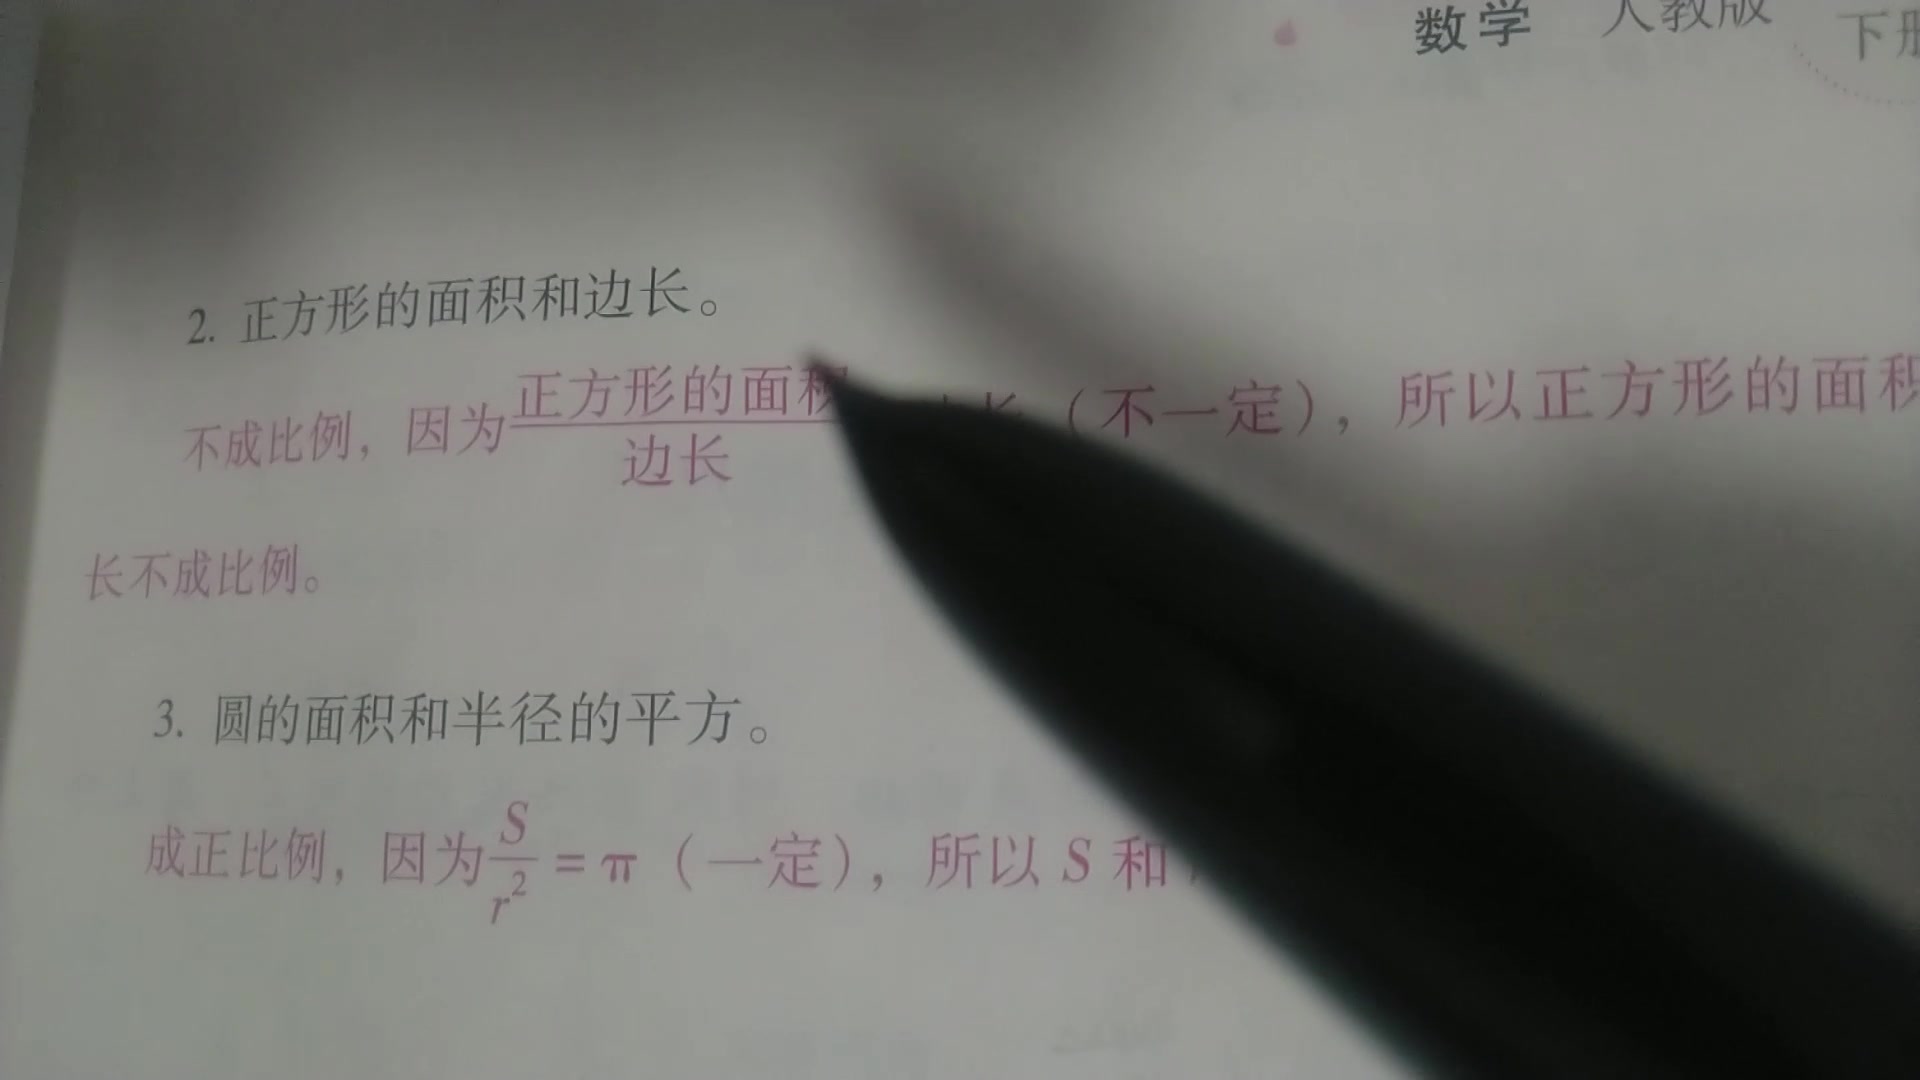 数学 人教版 下册
2. 正方形的面积和边长。
不成比例，因为正方形的面积/边长 长（不一定），所以正方形的面积
长不成比例。
3. 圆的面积和半径的平方。
成正比例，因为S/r²=π（一定），所以 S 和